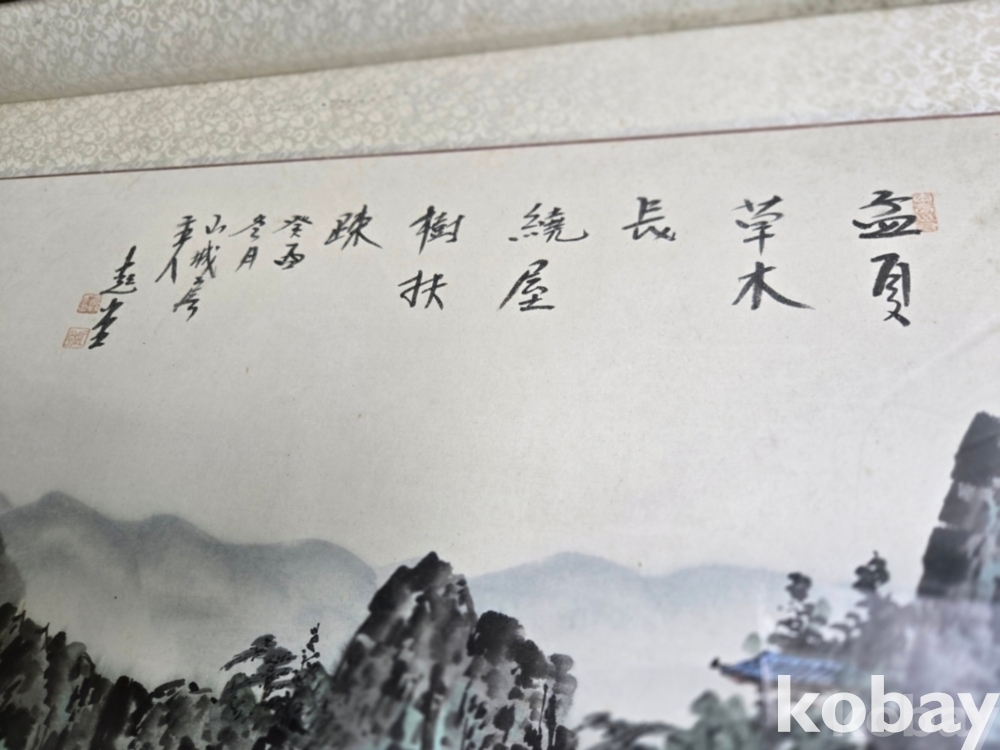 孟夏
草木
長
繞屋
樹扶
疎
癸酉
冬月
山城
kobay